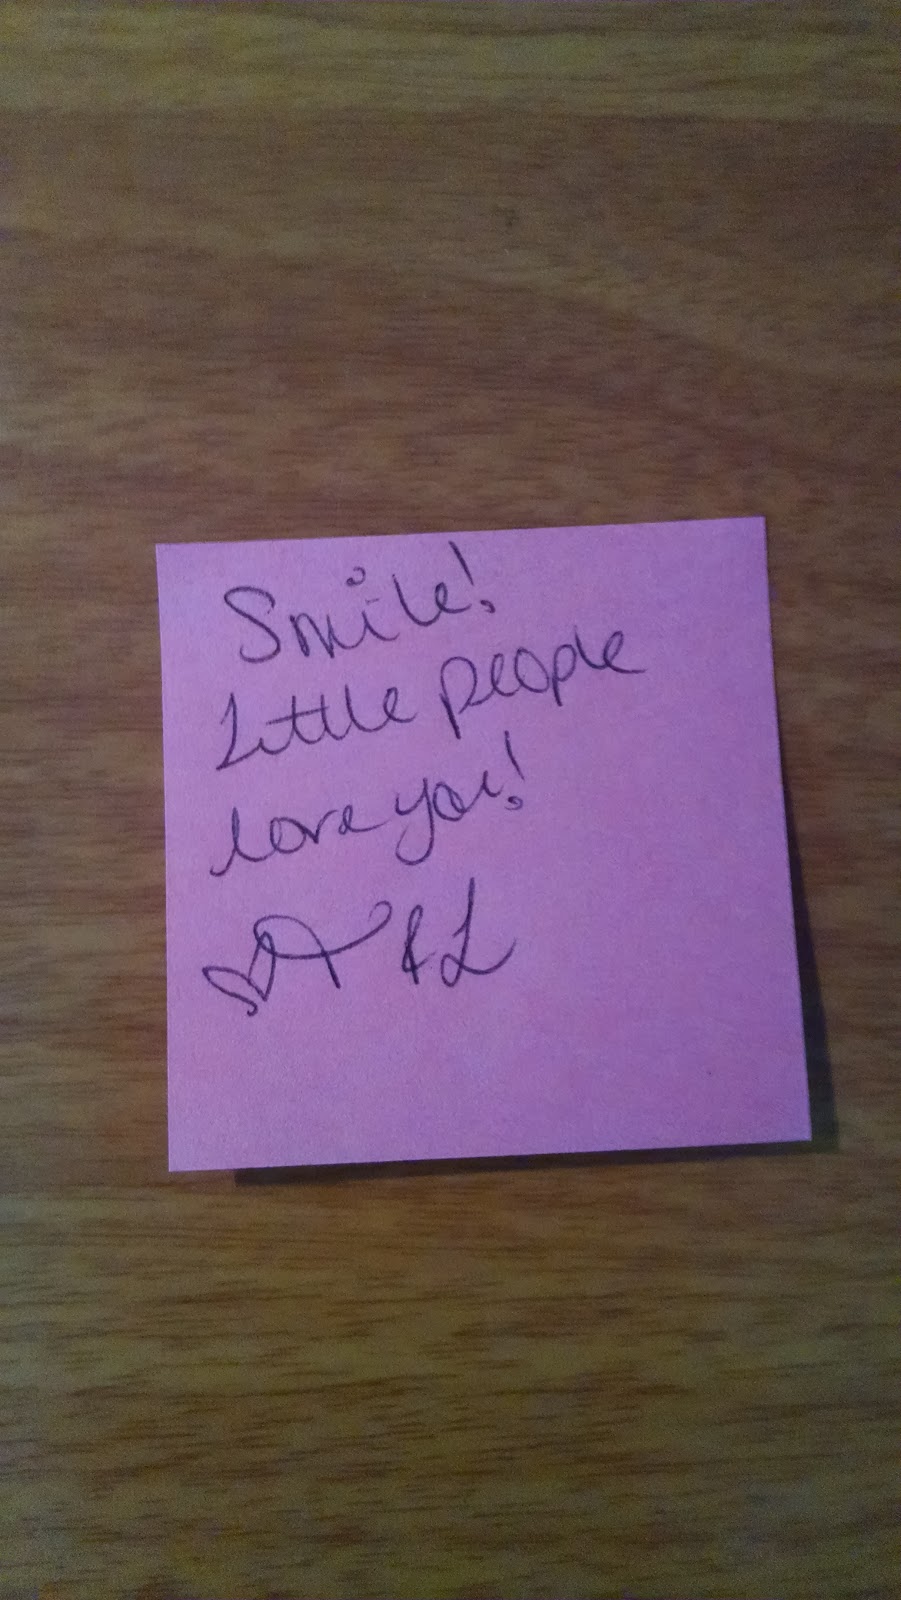 Smile!
Little people
love you!
♡ & L